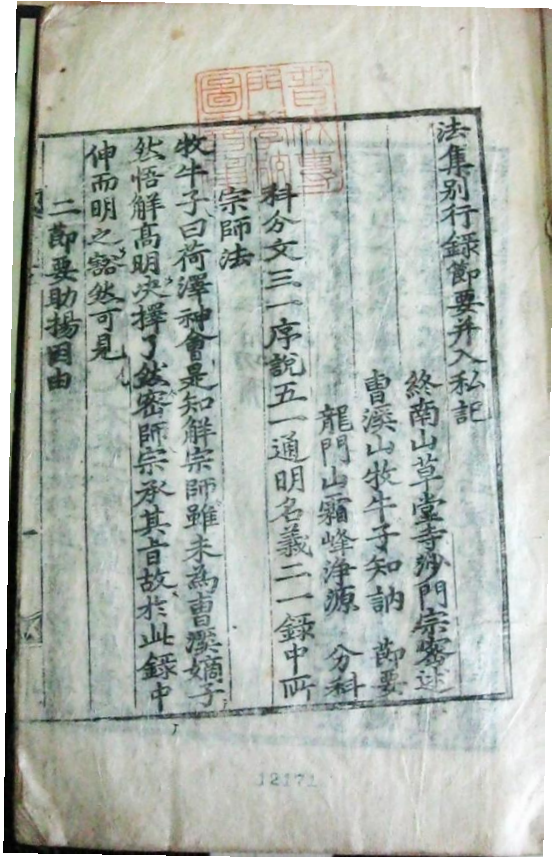 法集别行錄節要并入私記
終南山草堂寺沙門宗密述
曹溪山牧牛子知訥 節要
龍門山霜峰淨源 分科
科分文三一序說五一通明名義二一錄中所
宗師法
牧牛子曰荷澤神會是知解宗師雖未為曹溪嫡子
然悟解高明决擇了然密師宗承其旨故於此錄中
伸而明之豁然可見
二節要助揚因由
12171